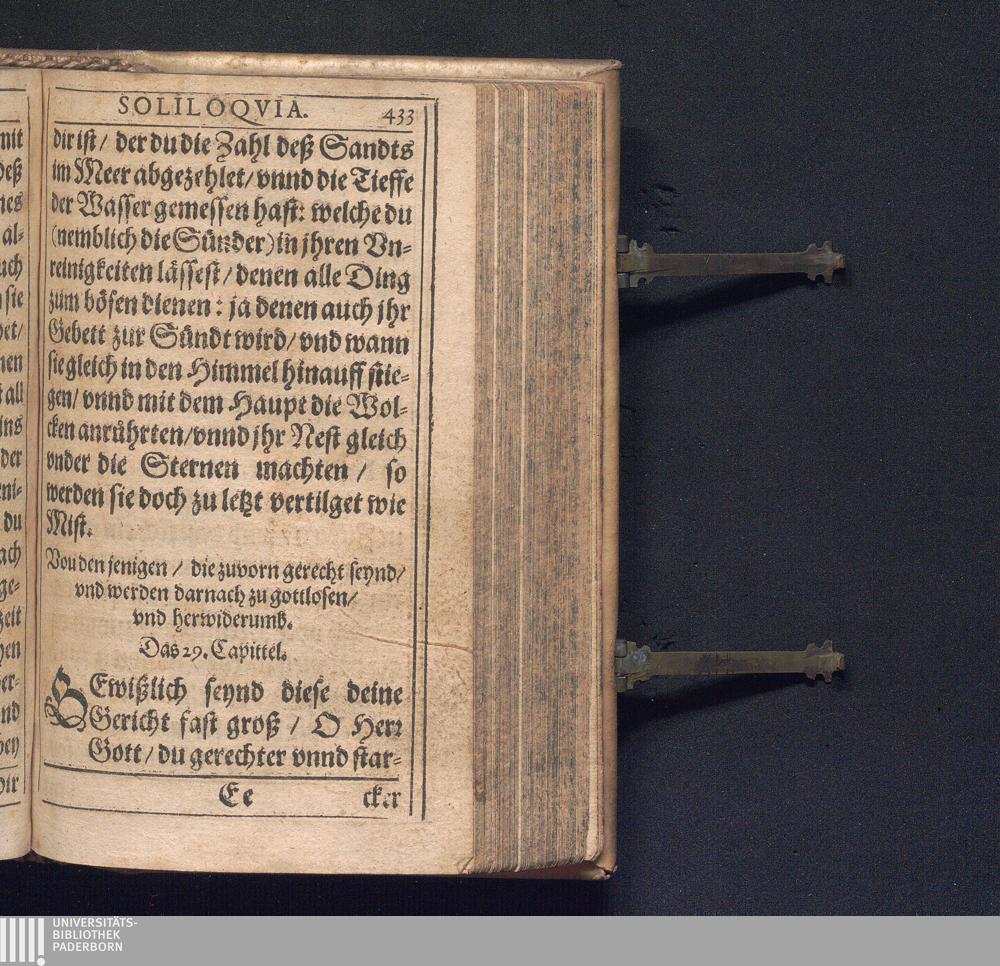 SOLILOQVIA. 433
dir ist / der du die Zahl deß Sandts
im Meer abgezehlet / vnnd die Tieffe
der Wasser gemessen hast: welche du
(nemblich die Sünder) in jhren Vn-
reinigkeiten lässest / denen alle Ding
zum bösen dienen: ja denen auch jhr
Gebett zur Sündt wird / vnd wann
sie gleich in den Himmel hinauff stie-
gen / vnnd mit dem Haupt die Wol-
cken anrührten / vnnd jhr Nest gleich
vnder die Sternen machten / so
werden sie doch zu letzt vertilget wie
Mist.
Von den jenigen / die zuvorn gerecht seynd /
vnd werden darnach zu gottlosen /
vnd herwiderumb.
Das 29. Capittel.
GEwißlich seynd diese deine
Gericht fast groß / O Herr
Gott / du gerechter vnnd star-
Ee cker
mit
deß
nes
al-
uch
sie
bet /
nen
all
ins
der
ni-
du
ach
ge-
zeit
hen
er-
nd
bey
dir
UNIVERSITÄTS-
BIBLIOTHEK
PADERBORN